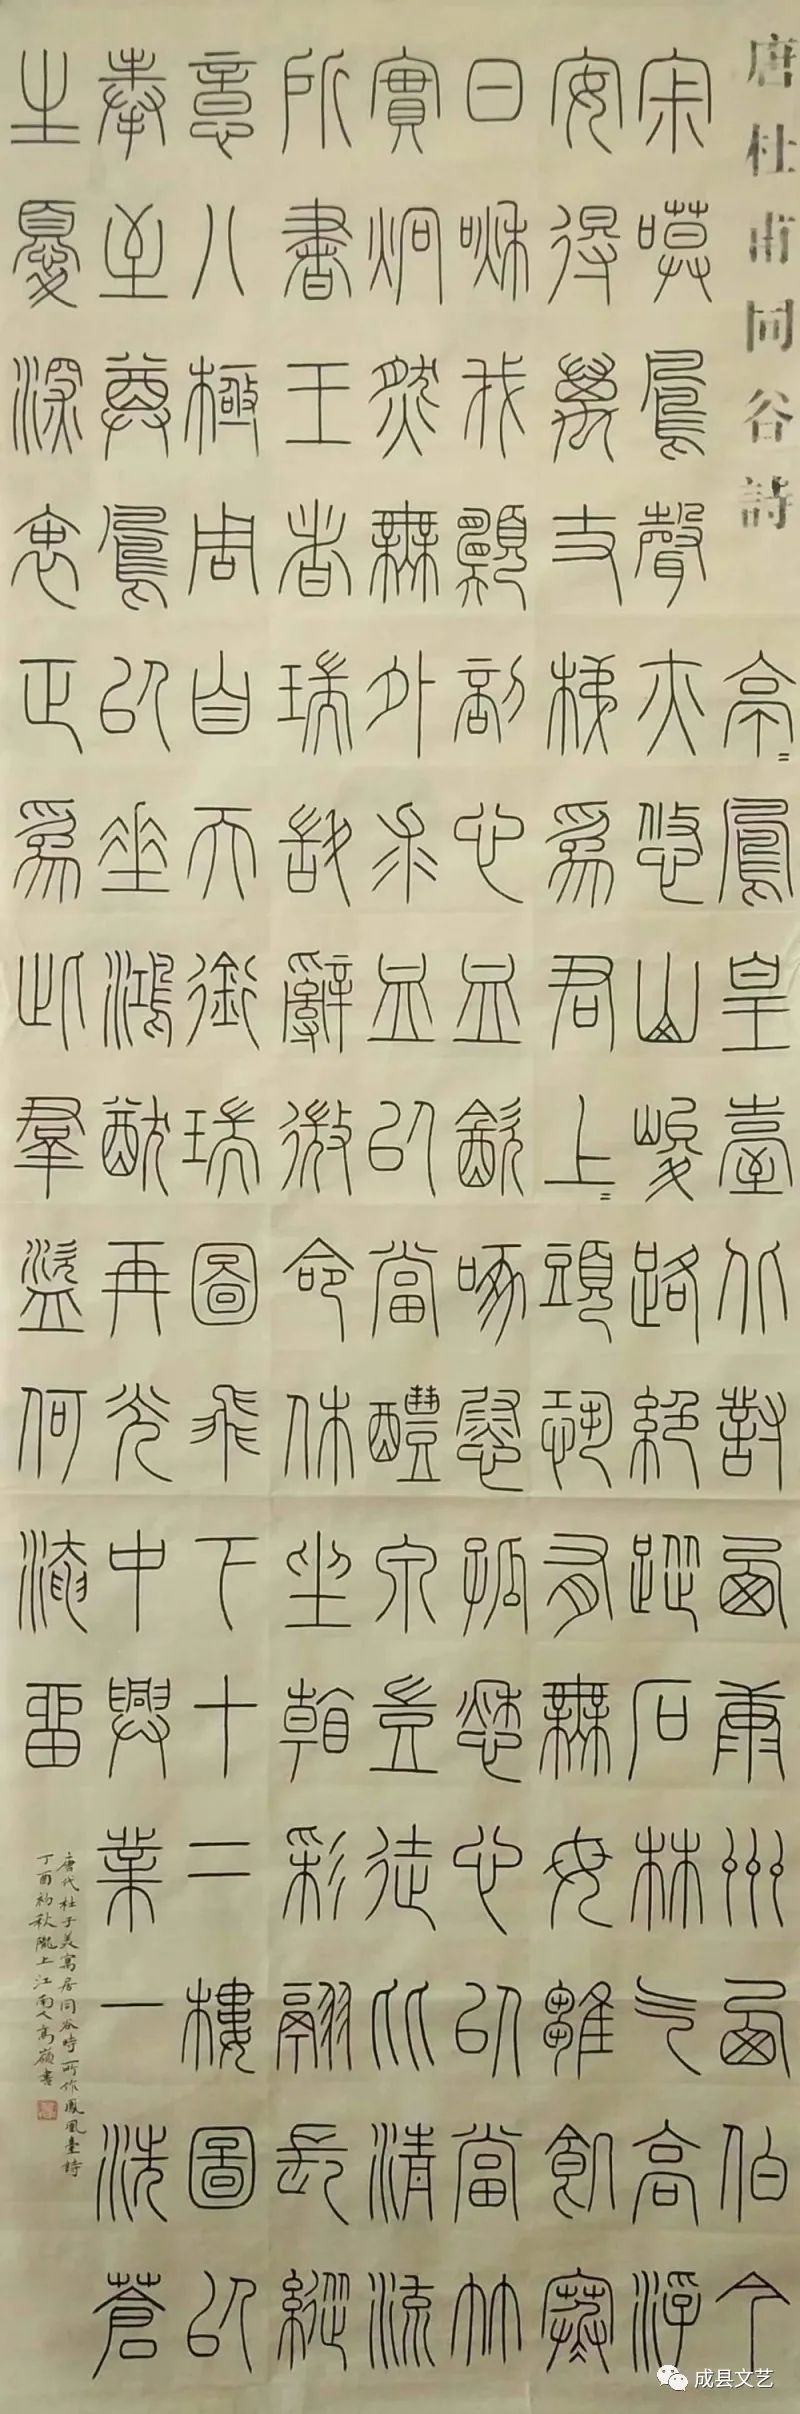 唐杜甫同谷詩
亭〻鳳皇臺北對西康州西伯今
寂嗼鳳聲亦悠山峻路絕蹤石林气高浮
安得萬丈梯爲君上〻頭恐有無母雛飢寒
日啾我剖心血飲啄慰孤愁心㠯當竹
實炯然無外求血㠯當醴泉豈徒比清流
所王者瑞敢辭微命休坐彩翮長縱
意八極周自天銜瑞圖飛下十二樓圖㠯
奉至尊鳳㠯垂鴻猷再光中興業一洗蒼
生憂深衷正爲此羣盜何淹留
唐代杜子美寓居同谷時所作鳳凰臺詩
丁酉初秋隴上江南人高嶺書
成县文艺